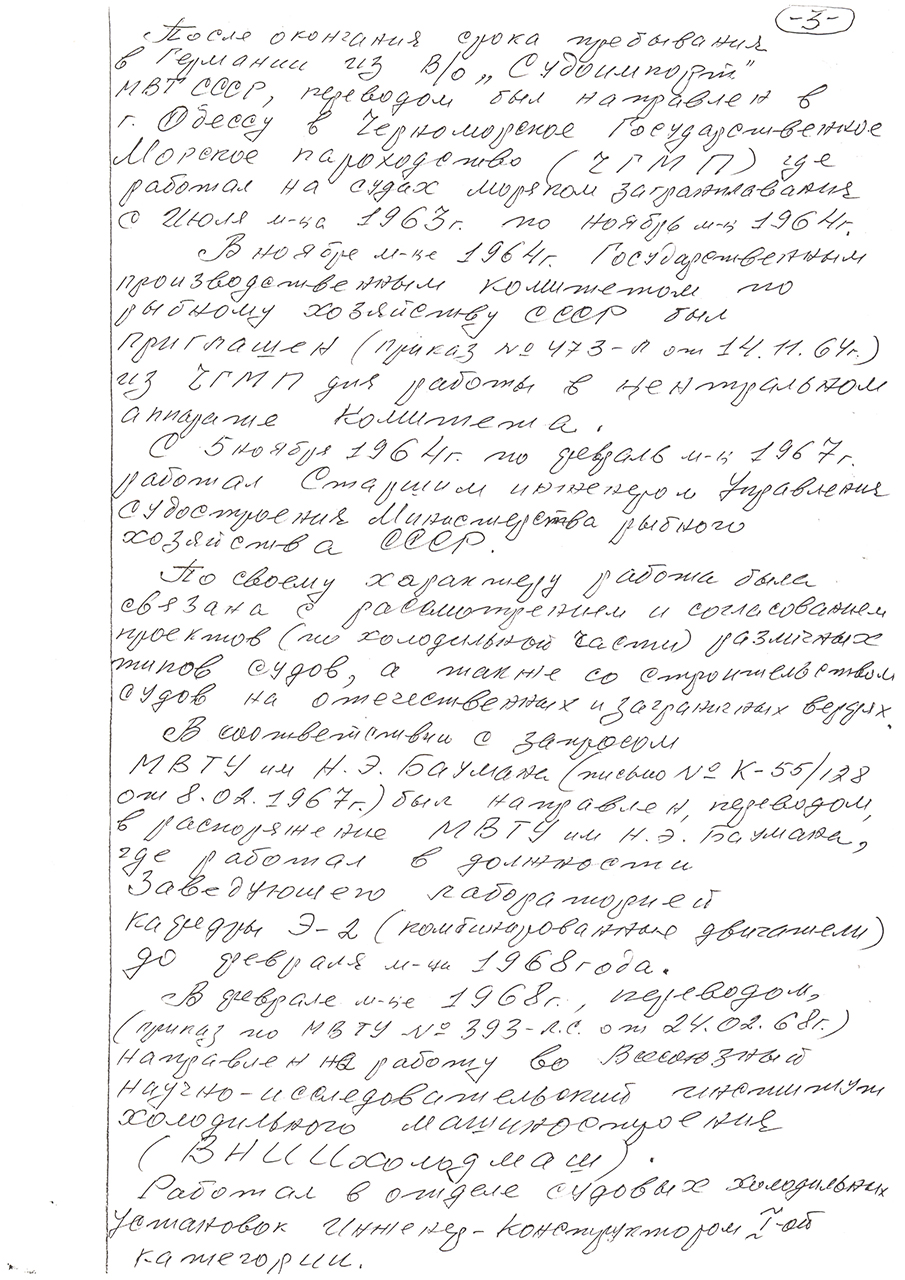 -3-
После окончания срока пребывания
в Германии из В/О „Судоимпорт"
МВТ СССР, переводом был направлен в
г. Одессу в Черноморское Государственное
Морское пароходство (ЧГМП) где
работал на судах моряком загранплавания
с Июля м-ца 1963г. по ноябрь м-ц 1964г.
В ноябре м-це 1964г. Государственным
производственным комитетом по
рыбному хозяйству СССР был
приглашен (приказ № 473-Л от 14.11.64г.)
из ЧГМП для работы в центральном
аппарате Комитета.
С 5 ноября 1964г. по февраль м-ц 1967г.
работал Старшим инженером Управления
судостроения Министерства рыбного
хозяйства СССР.
По своему характеру работа была
связана с рассмотрением и согласованием
проектов (по холодильной части) различных
типов судов, а также со строительством
судов на отечественных и заграничных верфях.
В соответствии с запросом
МВТУ им Н.Э. Баумана (письмо № К-55/128
от 8.02.1967г.) был направлен, переводом,
в распоряжение МВТУ им Н.Э. Баумана,
где работал в должности
Заведующего лабораторией
кафедры Э-2 (комбинированные двигатели)
до февраля м-ца 1968 года.
В феврале м-це 1968г., переводом,
(приказ по МВТУ № 393-Л.С. от 24.02.68г.)
направлен на работу во Всесоюзный
научно-исследовательский институт
холодильного машиностроения
(ВНИИхолодмаш).
Работал в отделе судовых холодильных
установок Инженер-конструктором I-ой
категории.